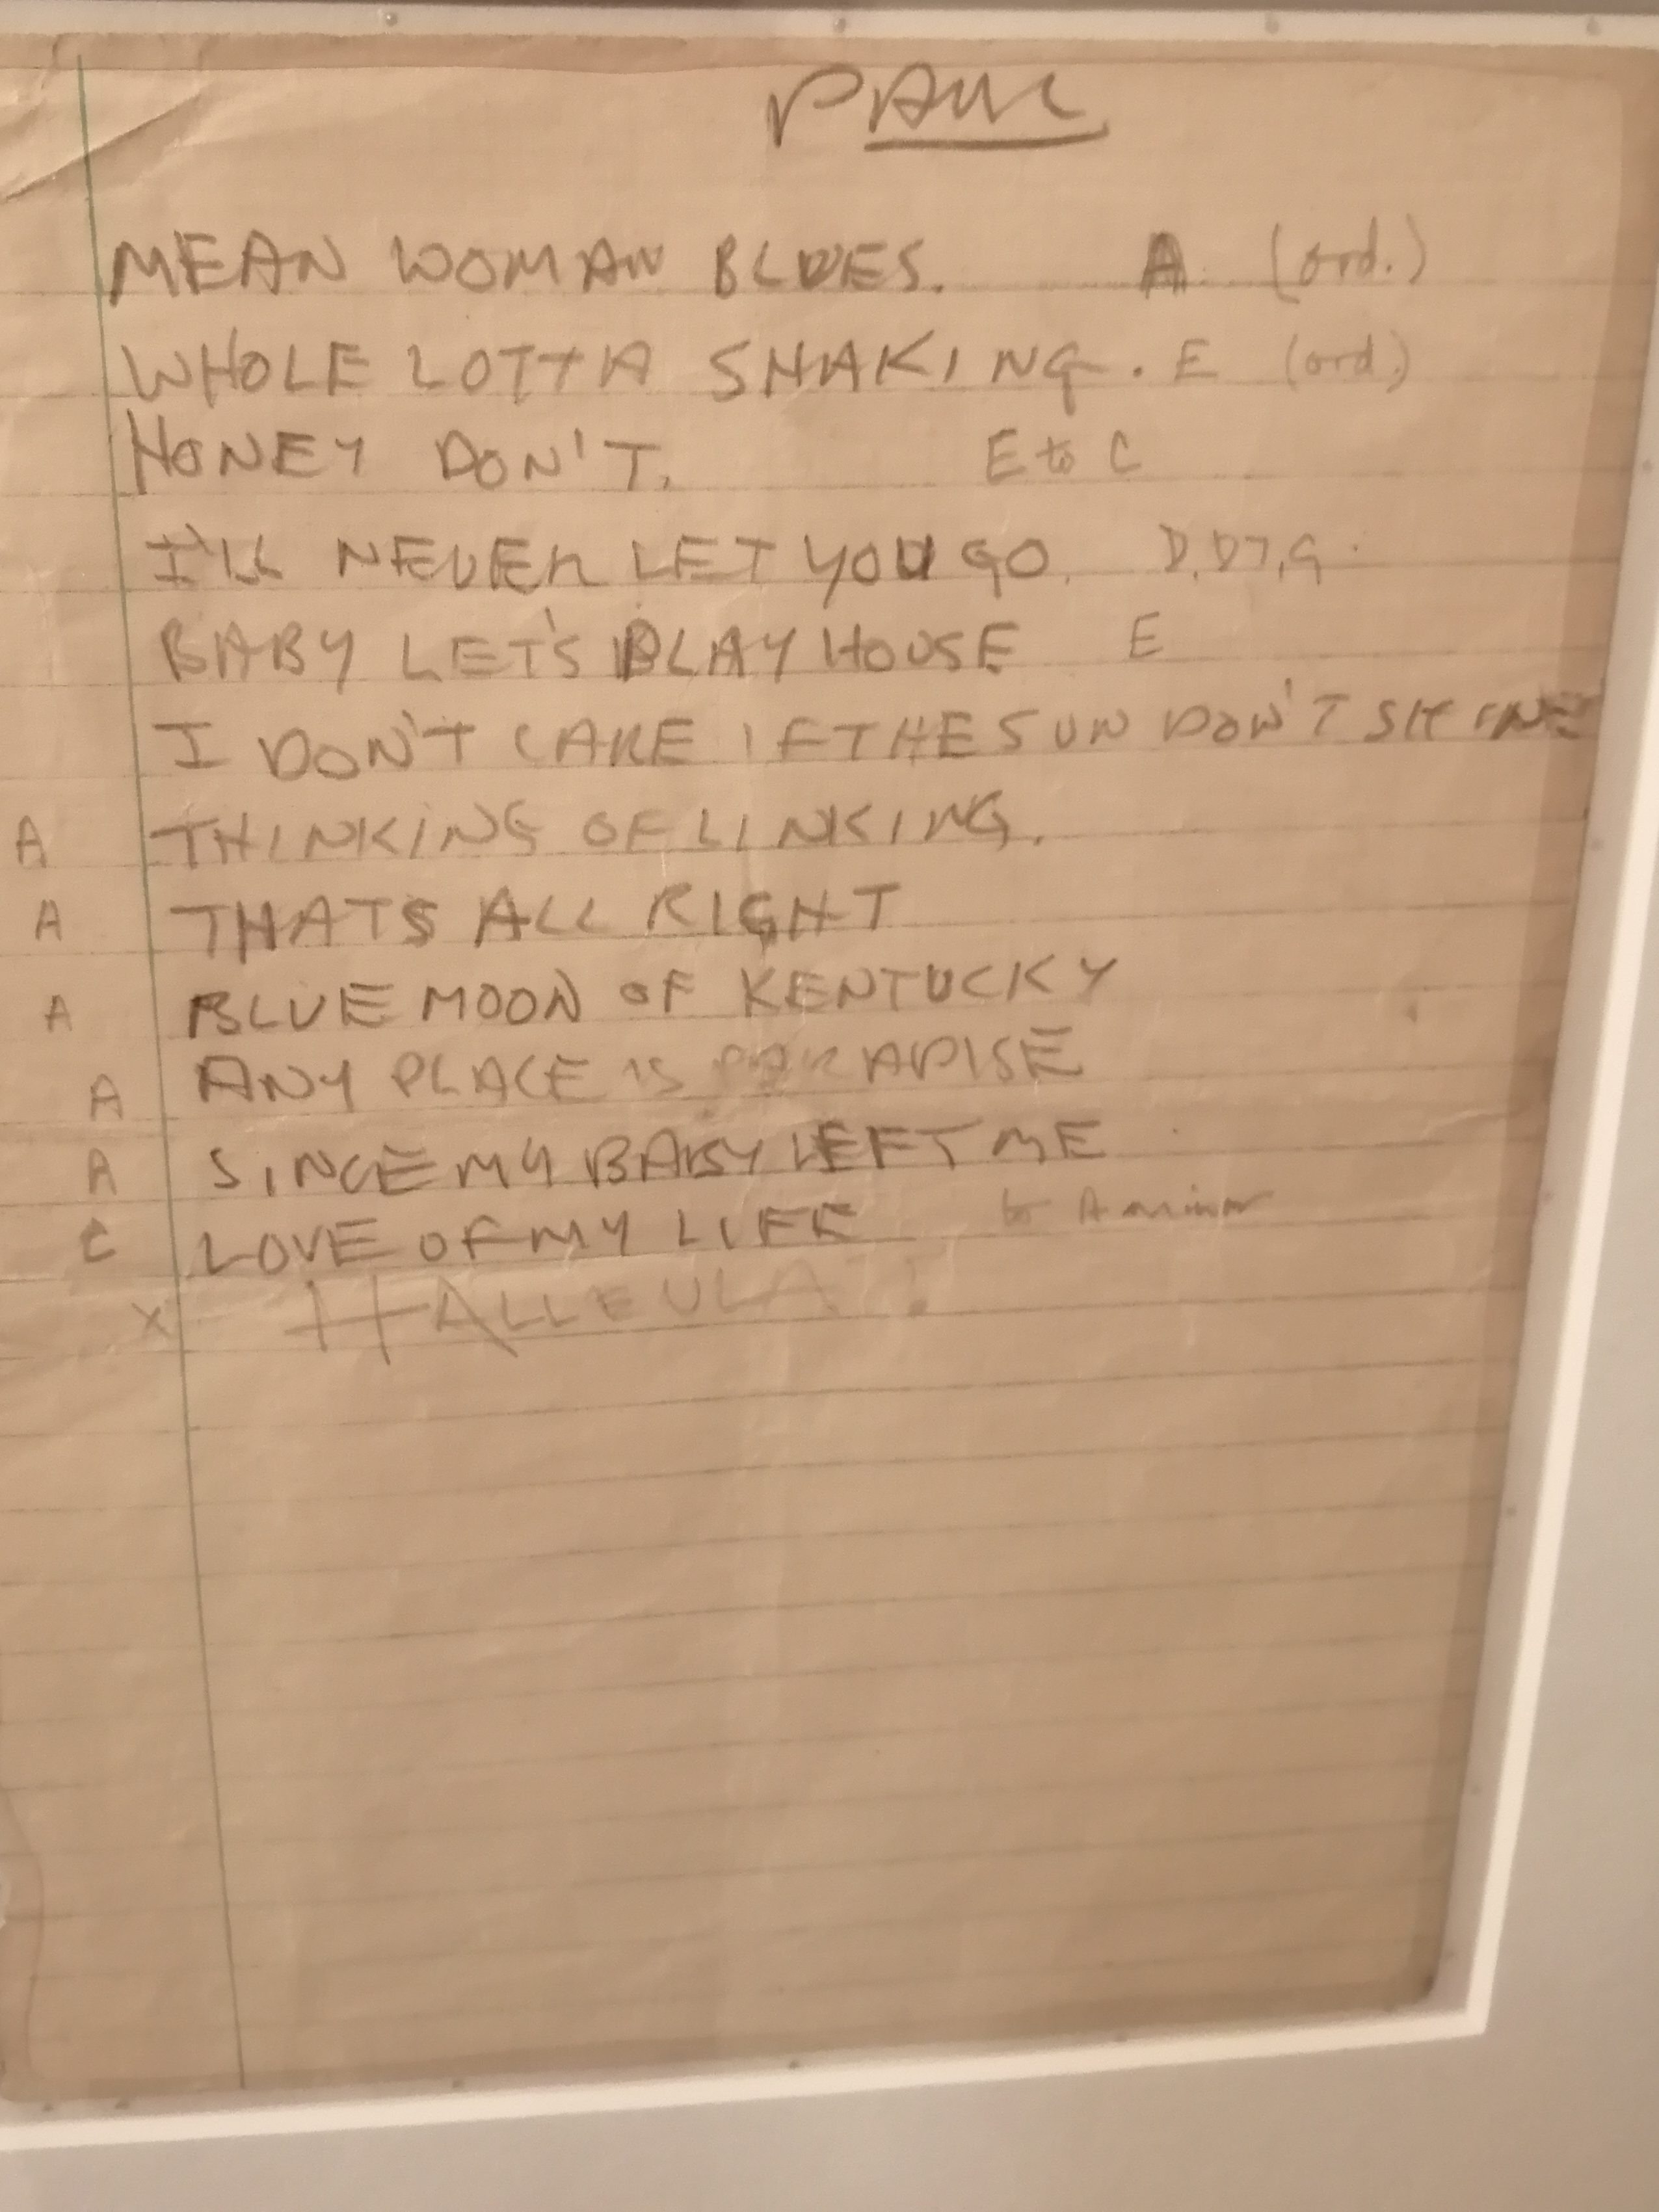 PAUL
MEAN WOMAN BLUES. A (ord.)
WHOLE LOTTA SHAKING. E (ord.)
HONEY DON'T. E to C
I'LL NEVER LET YOU GO. D, D7, G.
BABY LET'S PLAY HOUSE E
I DON'T CARE IF THE SUN DON'T SHINE
A THINKING OF LINKING.
A THATS ALL RIGHT
A BLUE MOON OF KENTUCKY
A ANY PLACE IS PARADISE
A SINCE MY BABY LEFT ME
C LOVE OF MY LIFE to A minor
X HALLEULA